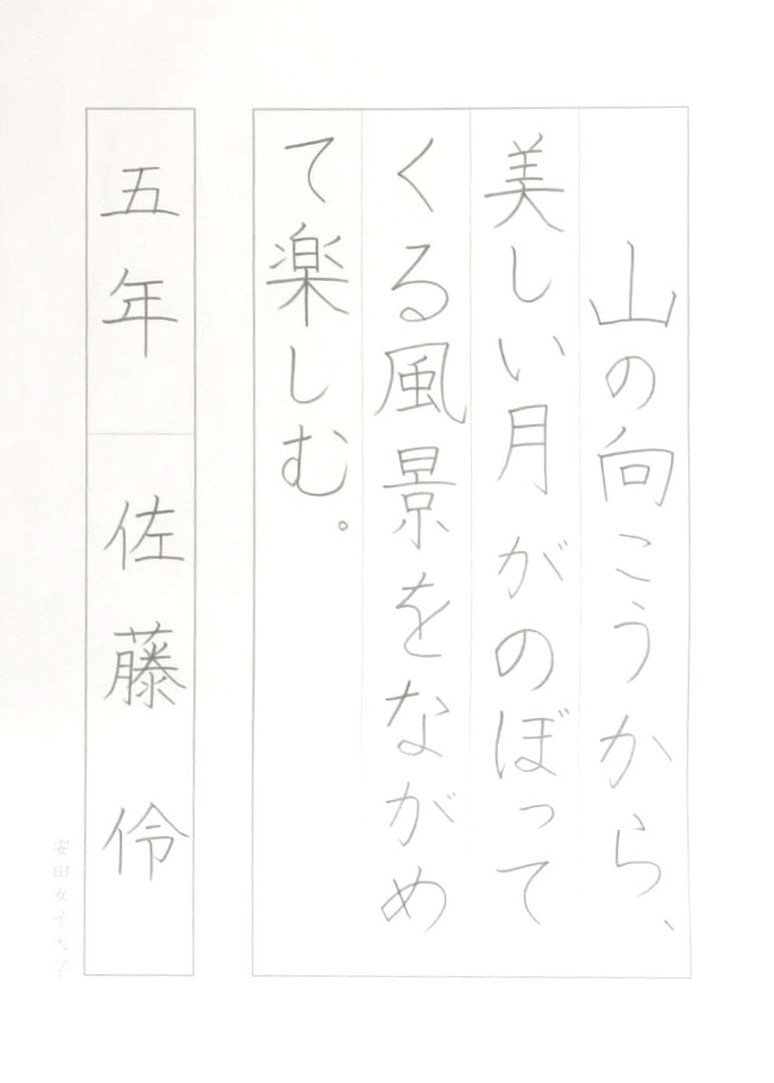 山の向こうから、
美しい月がのぼって
くる風景をながめ
て楽しむ。
五年 佐藤 伶
安田女子大学